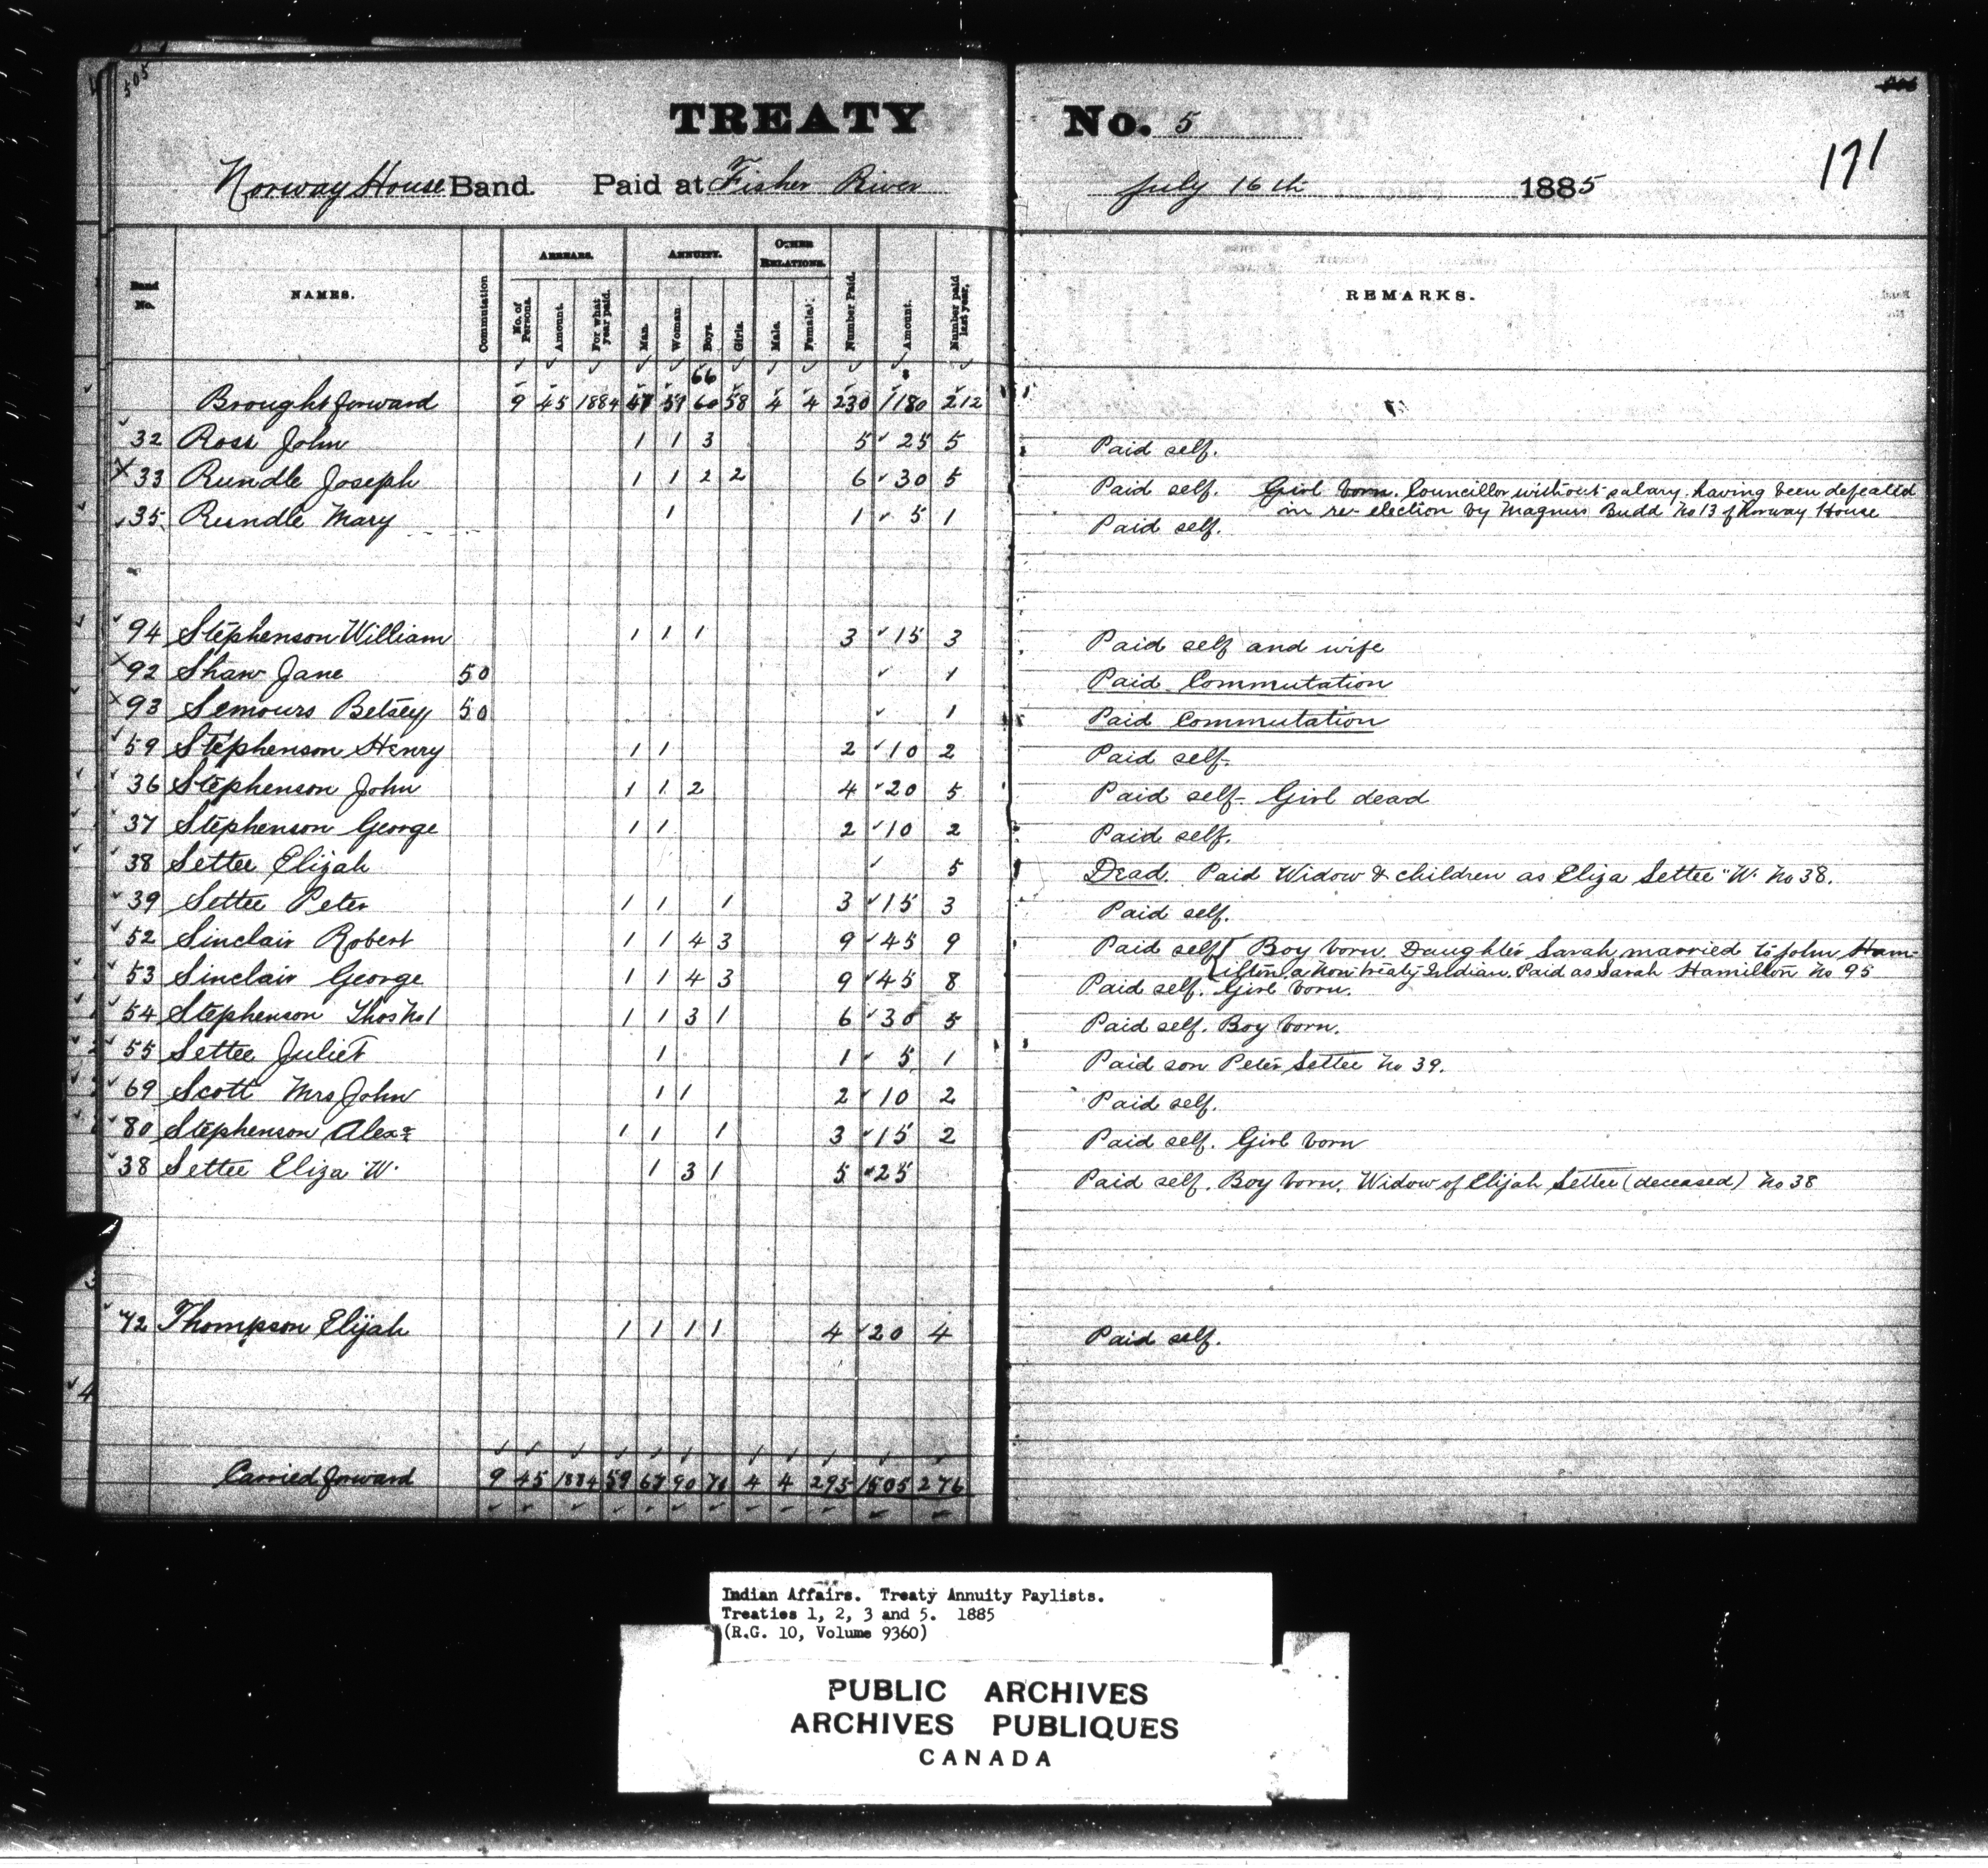 505
TREATY No. 5
171
Norway House Band. Paid at Fisher River July 16th 1885
Band No. NAMES. Commutation ARREARS. No. of Persons. Amount. For what year paid. ANNUITY. Man. Woman. Boys. Girls. OTHER RELATIONS. Male. Female. Number Paid. Amount. Number paid last year. REMARKS.
66
Brought forward 9 45 1884 59 60 58 4 4 230 1180 212
32 Ross John 1 1 3 5 25 5 Paid self.
33 Rundle Joseph 1 1 2 2 6 30 5 Paid self. Girl born. Councillor without salary having been defeated
in re-election by Magnus Budd No 13 of Norway House
35 Rundle Mary 1 1 5 1 Paid self.
94 Stephenson William 1 1 1 3 15 3 Paid self and wife
92 Shaw Jane 50 1 Paid Commutation
93 Semours Betsey 50 1 Paid Commutation
59 Stephenson Henry 1 1 2 10 2 Paid self.
36 Stephenson John 1 1 2 4 20 5 Paid self- Girl dead
37 Stephenson George 1 1 2 10 2 Paid self.
38 Settee Elijah 5 Dead. Paid Widow & children as Eliza Settee "W. No 38.
39 Settee Peter 1 1 1 3 15 3 Paid self.
52 Sinclair Robert 1 1 4 3 9 45 9 Paid self Boy born. Daughter Sarah married to John Ham-
ilton a Non-treaty Indian. Paid as Sarah Hamilton No 95
53 Sinclair George 1 1 4 3 9 45 8 Paid self. Girl born.
54 Stephenson Thos No 1 1 1 3 1 6 30 5 Paid self. Boy born.
55 Settee Juliet 1 1 5 1 Paid son Peter Settee No 39.
69 Scott Mrs John 1 1 2 10 2 Paid self.
80 Stephenson Alexr 1 1 1 3 15 2 Paid self. Girl born
38 Settee Eliza "W. 1 3 1 5 25 Paid self. Boy born. Widow of Elijah Settee (deceased) No 38
42 Thompson Elijah 1 1 1 1 4 20 4 Paid self.
4
Carried forward 9 45 1884 59 90 4 4 295 1505 276
Indian Affairs. Treaty Annuity Paylists.
Treaties 1, 2, 3 and 5. 1885
(R.G. 10, Volume 9360)
PUBLIC ARCHIVES
ARCHIVES PUBLIQUES
CANADA